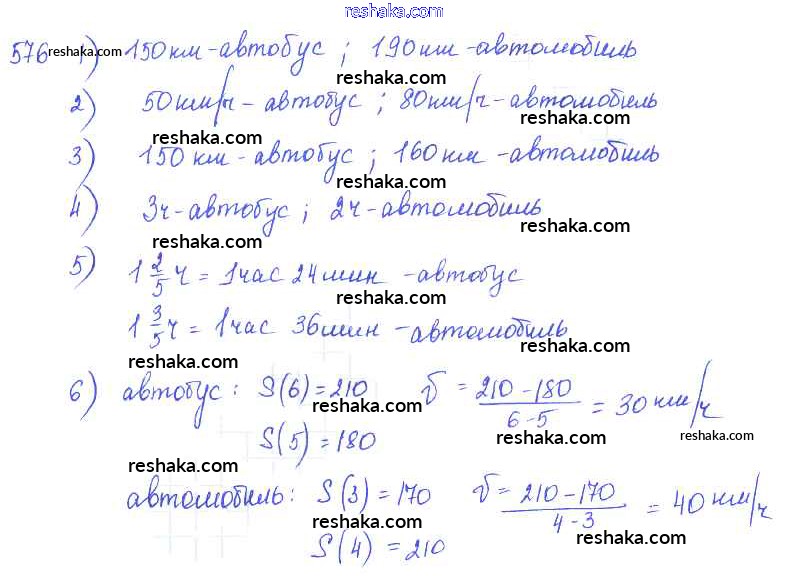 reshaka.com
576 reshaka.com 1) 150 км - автобус ; 190 км - автомобиль
reshaka.com
2) 50 км/ч - автобус ; 80 км/ч - автомобиль
reshaka.com reshaka.com
3) 150 км - автобус ; 160 км - автомобиль
reshaka.com reshaka.com
4) 3ч - автобус ; 2ч - автомобиль
reshaka.com
5) 1 2/5 ч = 1 час 24 мин - автобус
reshaka.com
1 3/5 ч = 1 час 36 мин - автомобиль
reshaka.com reshaka.com
6) автобус : S(6) = 210 v = (210 - 180)/(6 - 5) = 30 км/ч
reshaka.com reshaka.com reshaka.com
S(5) = 180
reshaka.com
автомобиль : S(3) = 170 v = (210 - 170)/(4 - 3) = 40 км/ч
reshaka.com reshaka.com
S(4) = 210
reshaka.com